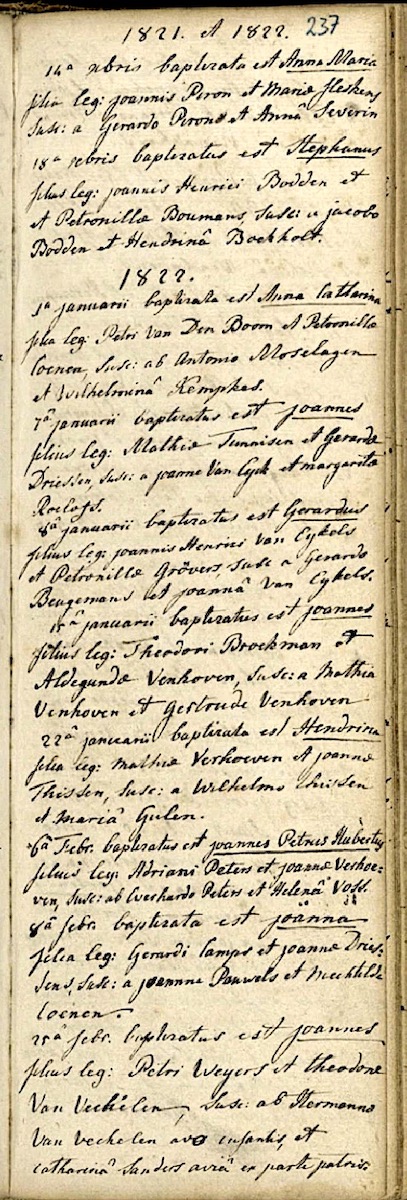 1821. et 1822. 237
14a xbris baptizata est Anna Maria
filia leg: joannis Peron et Mariæ fleskens
Susc: a Gerardo Perone et Annâ Severin
18a xebris baptizatus est Stephanus
filius leg: joannis Henrici Bodden et
et Petronillæ Boumans, Susc: a jacobo
Bodden et Hendrinâ Bockholt.
1822.
1a januarii baptizata est Anna Catharina
filia leg: Petri Van Den Boom et Petronillæ
Coenen, Susc: ab Antonio Moselagen
et Wilhelminâ Kempkes.
7a januarii baptizatus est joannes
filius leg: Mathiæ Tunnisen et Gerardæ
Driessen, Susc: a joanne Van Eyck et margaritæ
Roelofs.
8a januarii baptizatus est Gerardus
filius leg: joannis Henrici Van Eykels
et Petronillæ Grövers, Susc a Gerardo
Beugemans et joannâ Van Eykels.
januarii baptizatus est joannes
filius leg: Theodori Brockman et
Aldegundæ Venhoven, Susc: a Mathia
Venhoven et Gertrude Venhoven
22a januarii baptizata est Hendrina
filia leg: Mathiæ Verhoeven et joannæ
Thissen, Susc: a Wilhelmo thissen
et mariâ Gulen.
6a Febr. baptizatus est joannes Petrus Hubertus
filius leg: Adriani Peters et joannæ Verhoe-
ven, Susc: ab Everhardo Peters et Helenâ Voss.
8a febr. baptizata est joänna
filia leg: Gerardi Camps et joannæ Dries-
sens, Susc: a joanne Pauwels et Mechtilde
Coenen.
25a febr. baptizatus est joannes
filius leg: Petri Weyers et theodoræ
Van Vechelen, Susc: ab Hermanno
Van Vechelen avo infantis, et
catharinâ Sanders aviâ ex parte patris.